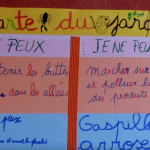 arte du jard
PEUX
JE NE PEU
tenir les buttes
dans les allées
Marcher sur
et polluer l
des produits
peux
Gaspill
arrose